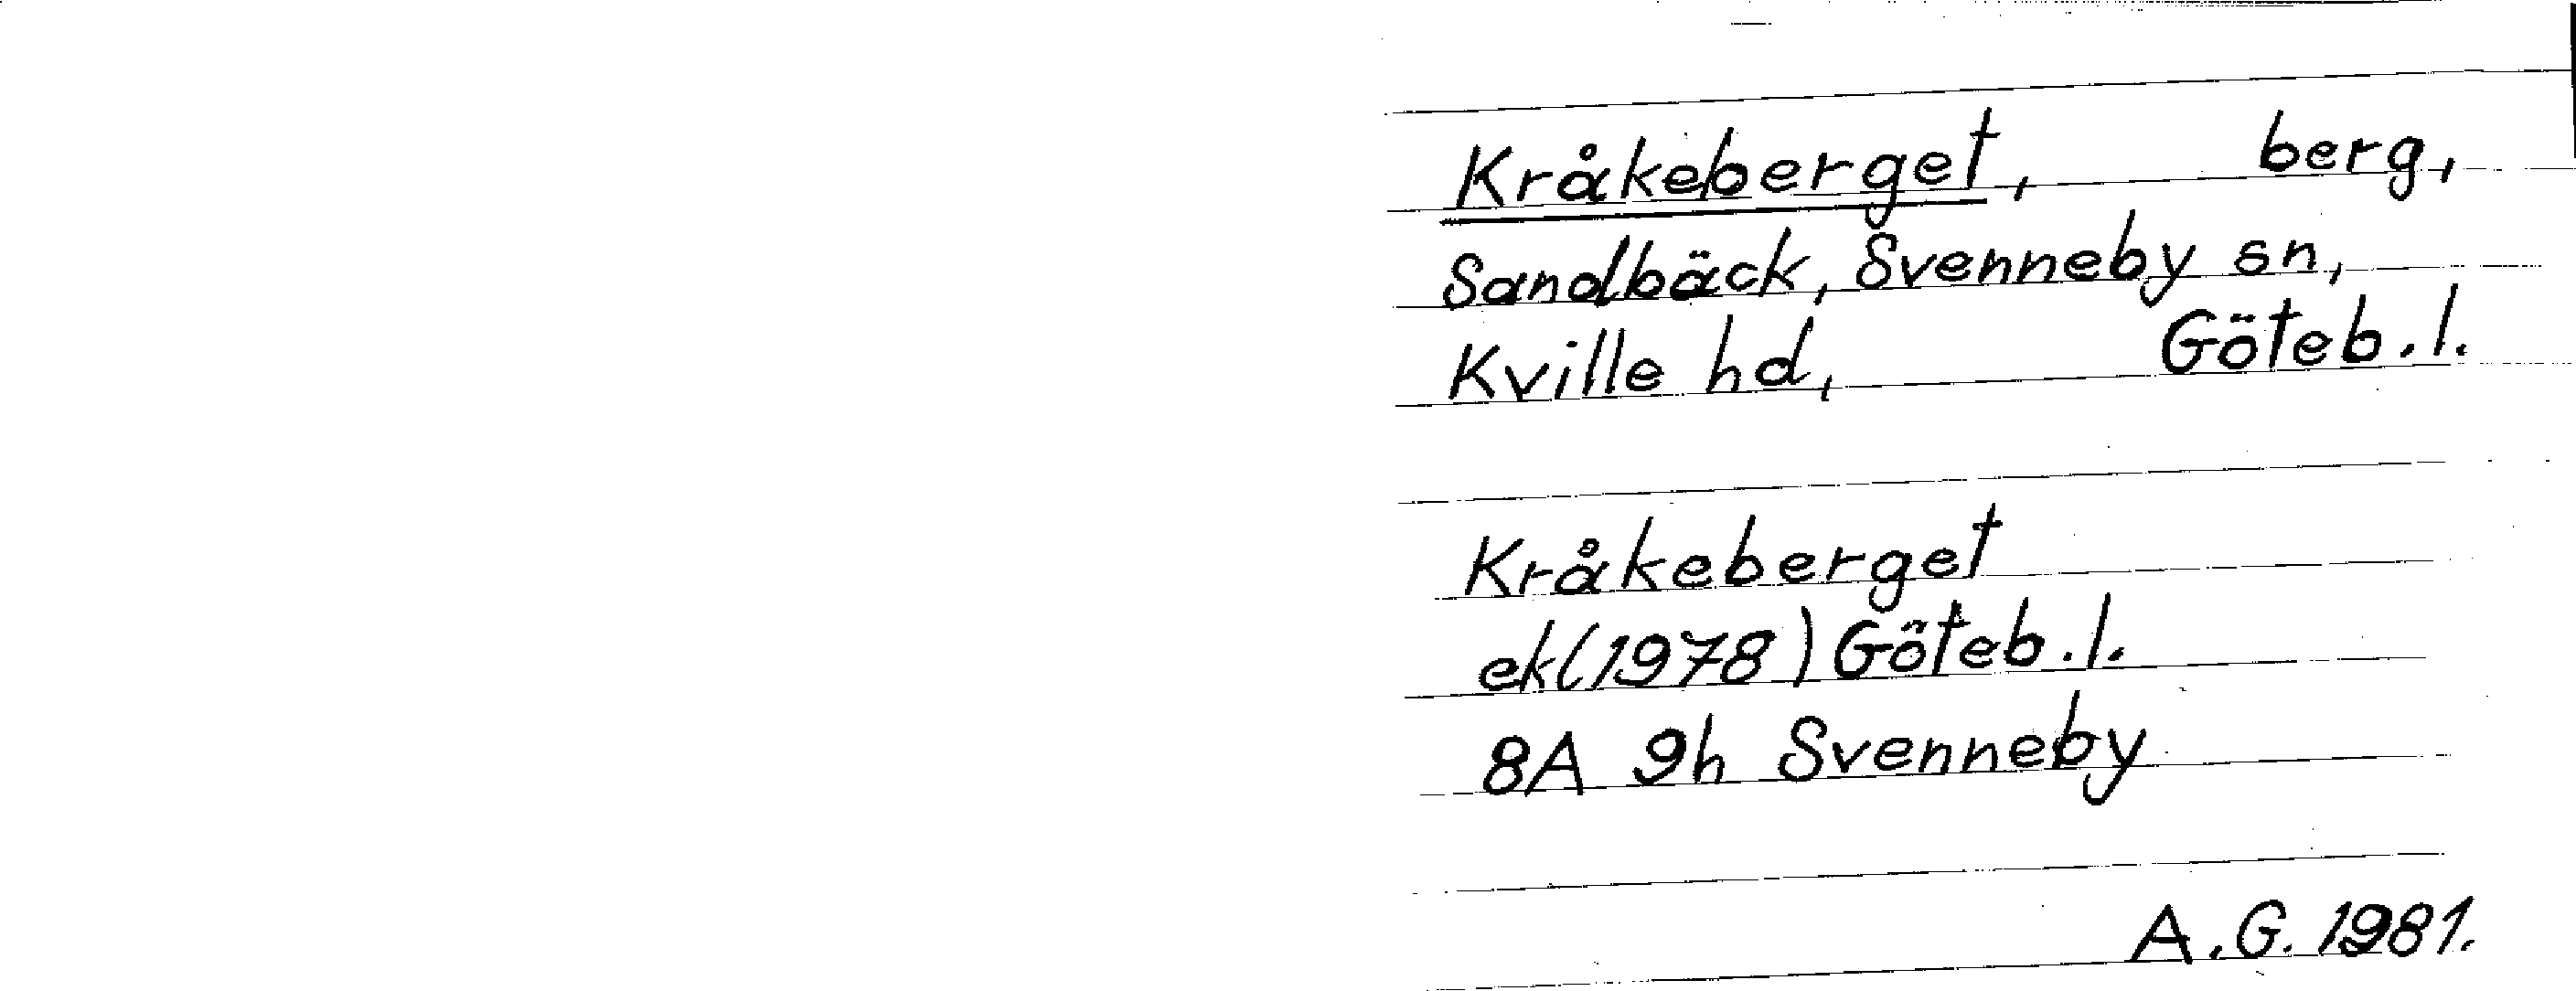 Kråkeberget, berg,
Sandbäck, Svenneby sn,
Kville hd, Göteb.l.
Kråkeberget
ek(1978) Göteb.l.
8A 9h Svenneby
A.G. 1981.